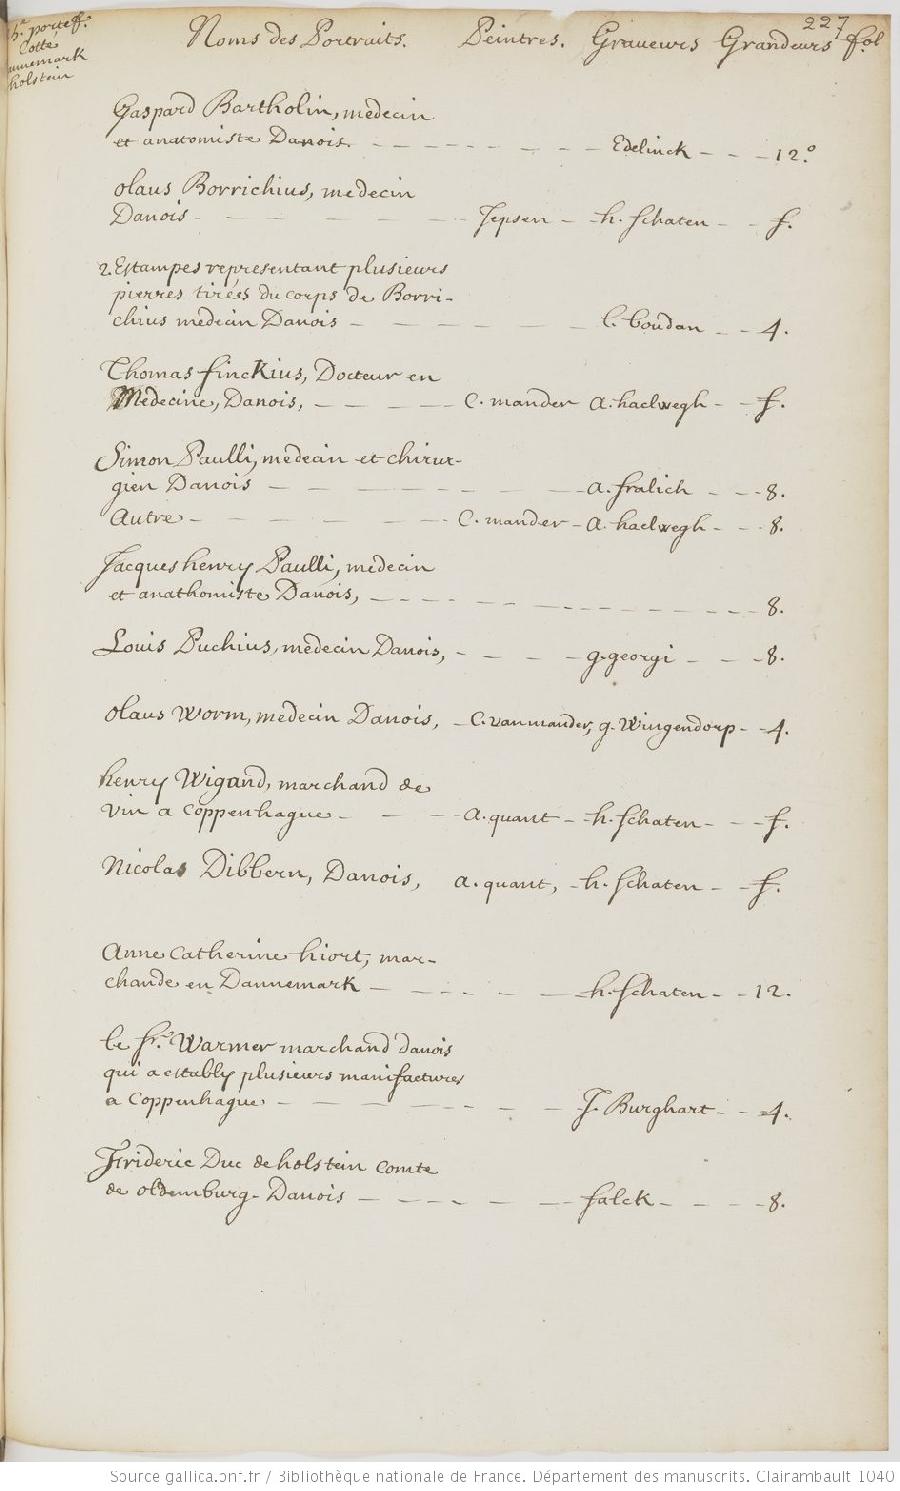 227
h.e portef.
Cotté
annemark
holstein
Noms des Portraits. Peintres. Graveurs Grandeurs fol
Gaspard Bartholin, medecin
et anatomiste Danois. Edelinck 12.o
olaus Borrichius, medecin
Danois Jepsen h. schaten f.
2. Estampes representant plusieurs
pierres tirées du corps de Borri-
chius medecin Danois l. boudan 4.
Thomas finckius, Docteur en
Medecine, Danois, C. mander a. haelwegh f.
Simon Paulli, medecin et chirur-
gien Danois a. fralich 8.
Autre C. mander a. haelwegh 8.
Jacques henry Paulli, medecin
et anathomiste Danois, 8.
Louis Puchius, medecin Danois, g. georgi 8.
olaus Worm, medecin Danois, C. van mander, g. Wingendorp 4.
henry Wigand, marchand de
vin a Coppenhague a. quant h. schaten f.
Nicolas Dibbern, Danois, a. quant, h. schaten f.
Anne Catherine hiort, mar-
chande en Dannemark h. schaten 12.
le Sr. Warmer marchand danois
qui a estably plusieurs manifactures
a Coppenhague J. Burghart 4.
Frideric Duc de holstein comte
de oldemburg Danois falck 8.
Source gallica.bnf.fr / Bibliothèque nationale de France. Département des manuscrits. Clairambault 1040